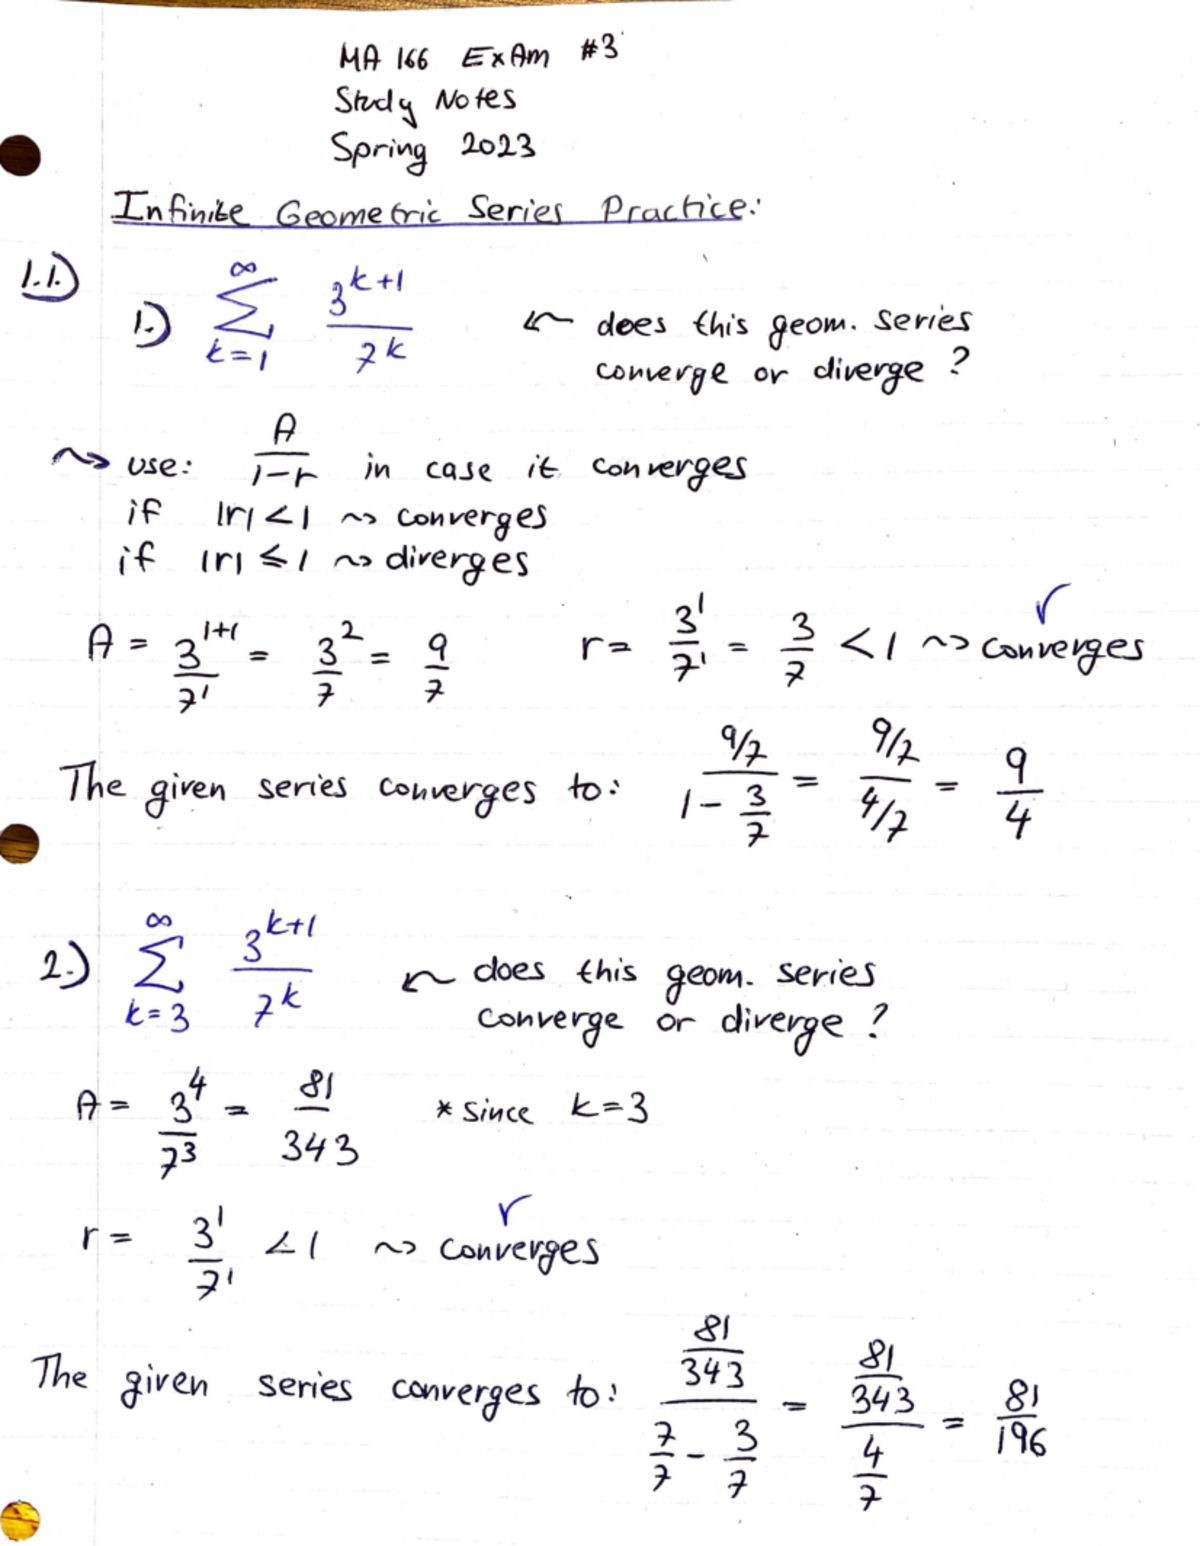 MA 166 ExAm #3
Study Notes
Spring 2023
Infinite Geometric Series Practice:
1.1.)
1.) ∞ Σ k=1 3^(k+1)/7^k ← does this geom. series
converge or diverge ?
~> use: A/(1-r) in case it converges
if |r|<1 ~> converges
if |r| ≤ 1 ~> diverges
A = 3^(1+1)/7^1 = 3^2/7 = 9/7 r = 3^1/7^1 = 3/7 < 1 ~> converges ✓
The given series converges to: (9/7)/(1 - 3/7) = (9/7)/(4/7) = 9/4
2.) ∞ Σ k=3 3^(k+1)/7^k ← does this geom. series
converge or diverge ?
A = 3^4/7^3 = 81/343 * since k=3
r = 3^1/7^1 < 1 ~> converges ✓
The given series converges to: (81/343)/(7/7 - 3/7) = (81/343)/(4/7) = 81/196